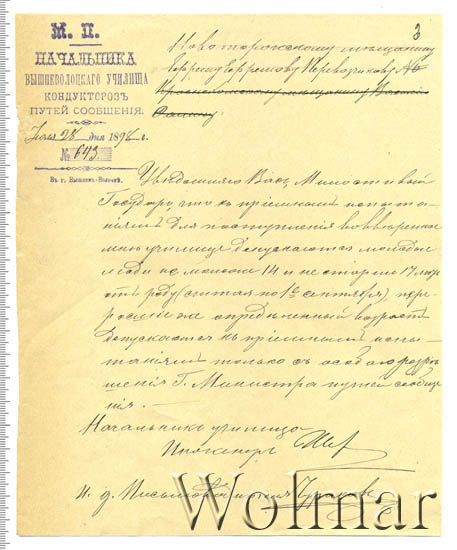 М. П.
НАЧАЛЬНИКА
ВЫШНЕВОЛОЦКАГО УЧИЛИЩА
КОНДУКТОРОВЪ
ПУТЕЙ СООБЩЕНІЯ.
Іюля 28 дня 189 г.
№ 643
Въ г. Вышнемъ-Волочкѣ.
3
Новоторжскому мѣщанину
Ефрему Ефремову
мѣщанину
Увѣдомляю Васъ, Милостивый
Государь, что къ пріемнымъ испыта-
ніямъ для поступленія во ввѣренное
мнѣ училище допускаются молодые
люди не моложе 14 и не старше 17 лѣтъ
отъ роду (считая по 1е сентября), пере-
росшіе же опредѣленный возрастъ
допускаются къ пріемнымъ испы-
таніямъ только съ особаго разрѣ-
шенія Г. Министра путей сообще-
нія. —
Начальникъ училища
Инженеръ
И. д. Письмоводителя
Wolmar